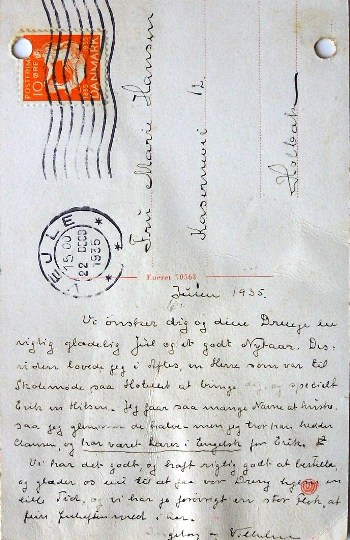 POSTFRIM.
10 ØRE
DANMARK
1935
VEJLE
15.00
22 DECB
1935
Fru Marie Hansen
Kasernevej 12
Holbæk
Eneret 70568
Julen 1935.
Vi ønsker dig og dine Drenge en
rigtig glædelig Jul og et godt Nytaar. Des-
uden lovede jeg i Aftes, en Herre som var til
Skolemøde paa Hotellet at bringe dig og specielt
Erik en Hilsen. Jeg faar saa mange Navne at huske,
saa jeg men jeg tror han hedder
Clausen, og har været Lærer i Engelsk for Erik.
Vi har det godt, og haft rigtig godt at bestille,
og glæder os nu til at faa vor Dreng hjem en
lille Tid, og vi har jo forøvrigt en stor Flok, at
fejre Juleaften med i her.
og Vilhelm